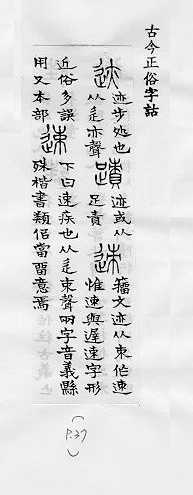 古今正俗字詁
迹 迹步処也 从辵亦聲 蹟 迹或从足責 速 籀文迹从朿作速 惟速與遲速字形
近俗多誤 速 下曰速疾也从辵束聲网字音義縣
用又本部 殊楷書類侣當畱意焉
P.37